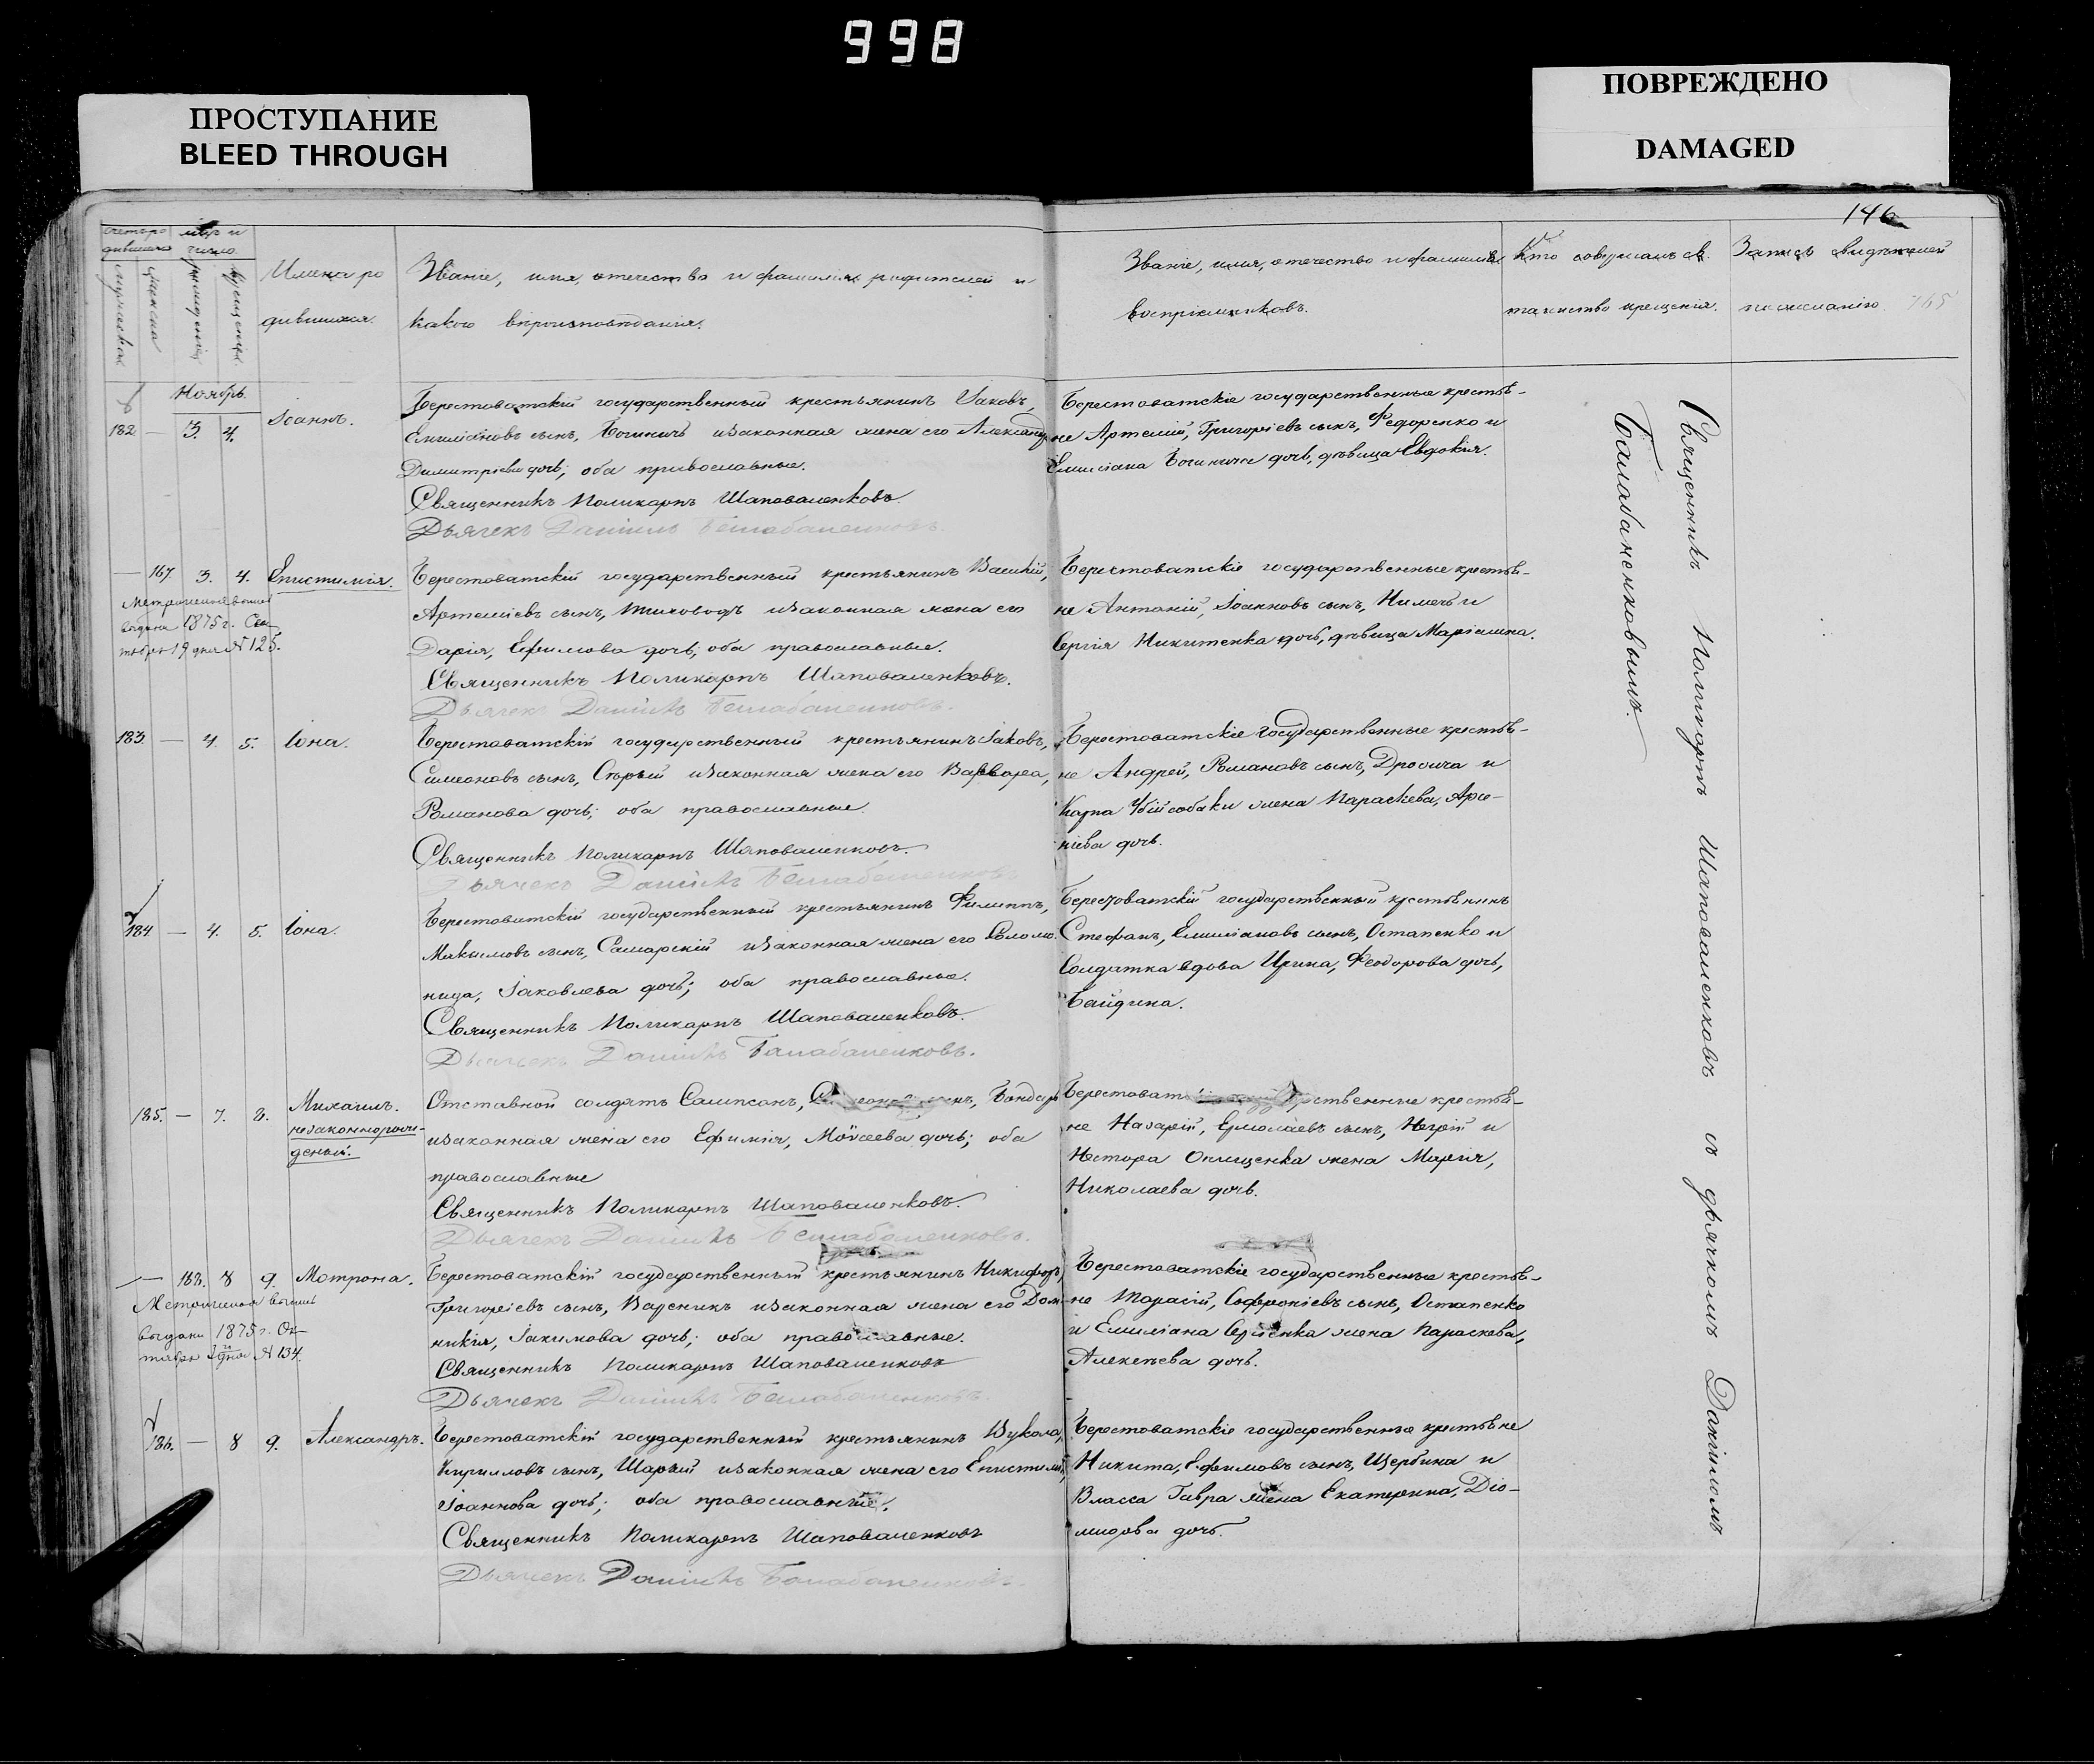 998
ПРОСТУПАНИЕ
BLEED THROUGH
ПОВРЕЖДЕНО
DAMAGED
146
165
Имена ро
дившихся.
Званіе, имя, отечество и фамилія родителей и
какого вѣроисповѣданія.
Званіе, имя, отечество и фамилія
воспріемниковъ.
Кто совершалъ св.
таинство крещенія.
Запись свидѣтелей
по желанію.
Ноябрь.
182 — 3. 4. Іоаннъ.
Берестоватскій государственный крестьянинъ Іаковъ,
Емиліановъ сынъ, и законная жена его
Димитріева дочь; оба православные.
Священникъ Поликарпъ Шаповаленковъ
Дьячекъ Даніилъ Балабаненковъ.
Берестоватскіе государственные крестья-
не Артемій, Григоріевъ сынъ, Федоренко и
Емиліана дочь, дѣвица Евдокія.
— 167. 3. 4. Епистимія.
Метрическая
выдана 1875 г. Сен-
тября 19 дня № 125.
Берестоватскій государственный крестьянинъ Василій,
Артеміевъ сынъ, и законная жена его
Дарія, Ефимова дочь; оба православные.
Священникъ Поликарпъ Шаповаленковъ.
Дьячекъ Даніилъ Балабаненковъ.
Берестоватскіе государственные крестья-
не Антоній, Іоанновъ сынъ, Нимечь и
Сергія Никитенка дочь, дѣвица Маріамна.
183. — 4. 5. Іона.
Берестоватскій государственный крестьянинъ Іаковъ,
Симеоновъ сынъ, и законная жена его Варвара,
Романова дочь; оба православные.
Священникъ Поликарпъ Шаповаленковъ.
Дьячекъ Даніилъ Балабаненковъ
Берестоватскіе государственные крестья-
не Андрей, Романовъ сынъ, и
Карпа Убійсобаки жена Параскева, Арсе-
ніева дочь.
184. — 4. 5. Іона.
Берестоватскій государственный крестьянинъ Филиппъ,
Максимовъ сынъ, Самарскій и законная жена его Соломо-
нида, Іаковлева дочь; оба православные.
Священникъ Поликарпъ Шаповаленковъ.
Дьячекъ Даніилъ Балабаненковъ.
Берестоватскій государственный крестьянинъ
Стефанъ, Емиліановъ сынъ, Остапенко и
Солдатка вдова Ирина, Феодорова дочь,
Байдина.
185. — 7. 8. Михаилъ.
незаконнорож-
денный.
Отставной солдатъ Сампсонъ, сынъ, Бондарь
и законная жена его Ефимія, Моѵсеева дочь; оба
православные
Священникъ Поликарпъ Шаповаленковъ.
Дьячекъ Даніилъ Балабаненковъ.
Берестоватскіе государственные крестья-
не Назарій, Ермолаевъ сынъ, Негрій и
Нестора Онищенка жена Марія,
Николаева дочь.
— 168. 8 9. Мотрона.
Метрическая
выдана 1875 г. Ок-
тября дня № 134.
Берестоватскій государственный крестьянинъ Никифоръ,
Григоріевъ сынъ, Вареникъ и законная жена его Дом-
никія, Іакимова дочь; оба православные.
Священникъ Поликарпъ Шаповаленковъ
Дьячекъ Даніилъ Балабаненковъ.
Берестоватскіе государственные крестья-
не Тарасій, Софроніевъ сынъ, Остапенко
и Емиліана Сергіенка жена Параскева,
Алексѣева дочь.
186. — 8 9. Александръ.
Берестоватскій государственный крестьянинъ Вукола,
Кирилловъ сынъ, Шарый и законная жена его Епистимія,
Іоаннова дочь; оба православные.
Священникъ Поликарпъ Шаповаленковъ
Дьячекъ Даніилъ Балабаненковъ.
Берестоватскіе государственные крестьяне
Никита, Ефимовъ сынъ, Щербина и
Власса Гавра жена Екатерина, Діо-
мидова дочь.
Священникъ Поликарпъ Шаповаленковъ съ дьячкомъ Даніиломъ
Балабаненковымъ.